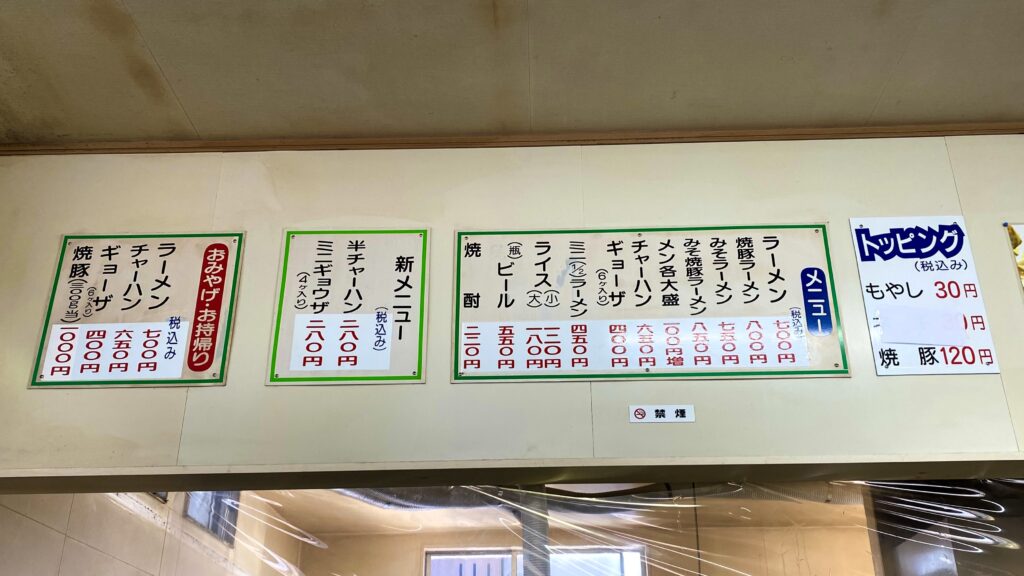 トッピング
(税込み)
もやし 30円
円
焼豚 120円
メニュー
(税込み)
ラーメン 七〇〇円
焼豚ラーメン 八〇〇円
みそラーメン 七五〇円
みそ焼豚ラーメン 八五〇円
メン各大盛 一〇〇円増
チャーハン 六五〇円
ギョーザ(6ヶ入り) 四〇〇円
ミニ(1/2)ラーメン 四五〇円
ライス(小) 一二〇円
(大) 一八〇円
(瓶)ビール 五五〇円
焼酎
新メニュー
(税込み)
半チャーハン
ミニギョウザ(4ヶ入り) 二八〇円
おみやげ・お持帰り
税込み
ラーメン 七〇〇円
チャーハン 六五〇円
ギョーザ(6ヶ入り) 四〇〇円
焼豚(300g当) 一〇〇〇円
禁煙